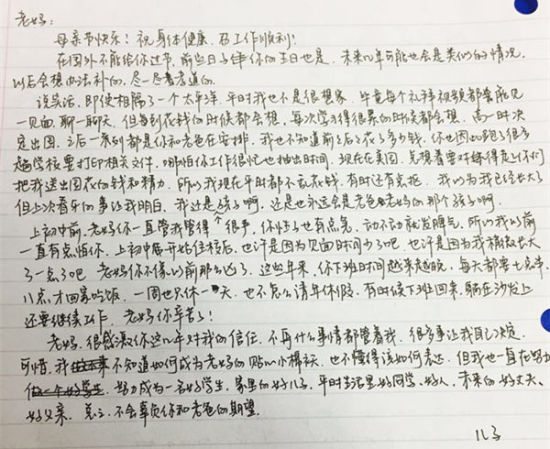 老妈:
母亲节快乐！祝身体健康，工作顺利！
在国外不能给你过节，前些日子伴你的生日也是，未来几年可能也会是类似的情况，
以后会想办法补的，尽一尽着孝道的。
说实话，即使相隔了一个太平洋，平时我也不是很想家，毕竟每个礼拜视频都要能见
一见面，聊一聊天，但每到花钱的时候都会想，每次学习得很累的时候都会想，高一时决
定出国，之后一系列都是你和老爸在安排，我也不知道前前后后花了多少钱，你也因此跑了很多
趟学校要打印相关文件，哪怕你工作很忙也抽出时间，现在在美国，先想着要对得起你们
把我送出国花的钱和精力，所以我现在平时都不乱花钱，有时还有点抠，我以为我已经长大了
但上次看牙的事让我明白，我还是孩子啊，还是也永远会是老爸老妈的那个孩子啊。
上初中前，老妈你一直管我管得很多，你性子也有点急，动不动就发脾气，所以我以前
一直有点怕你，上初中后开始住校后，也许是因为见面时间少了吧，也许是因为我稍微长大
了一点了吧，老妈你不像以前那么凶了，这些年来，你下班时间越来越晚，每天都要七点半、
八点才回家吃饭，一周也只休一天，也不怎么请年休假，有时候下班回来，躺在沙发上
还要继续工作，老妈你辛苦了！
老妈，很感激你这几年对我的信任，不再什么事情都管着我，很多事让我自己决定，
可惜，我不知道如何成为老妈的贴心小棉袄，也不懂得该如何表达，但我也一直在努力
做一个好学生，努力成为一名好学生，家里的好儿子，平时生活里好同学、好人，未来的好丈夫、
好父亲，总之，不会辜负你和老爸的期望。
儿子